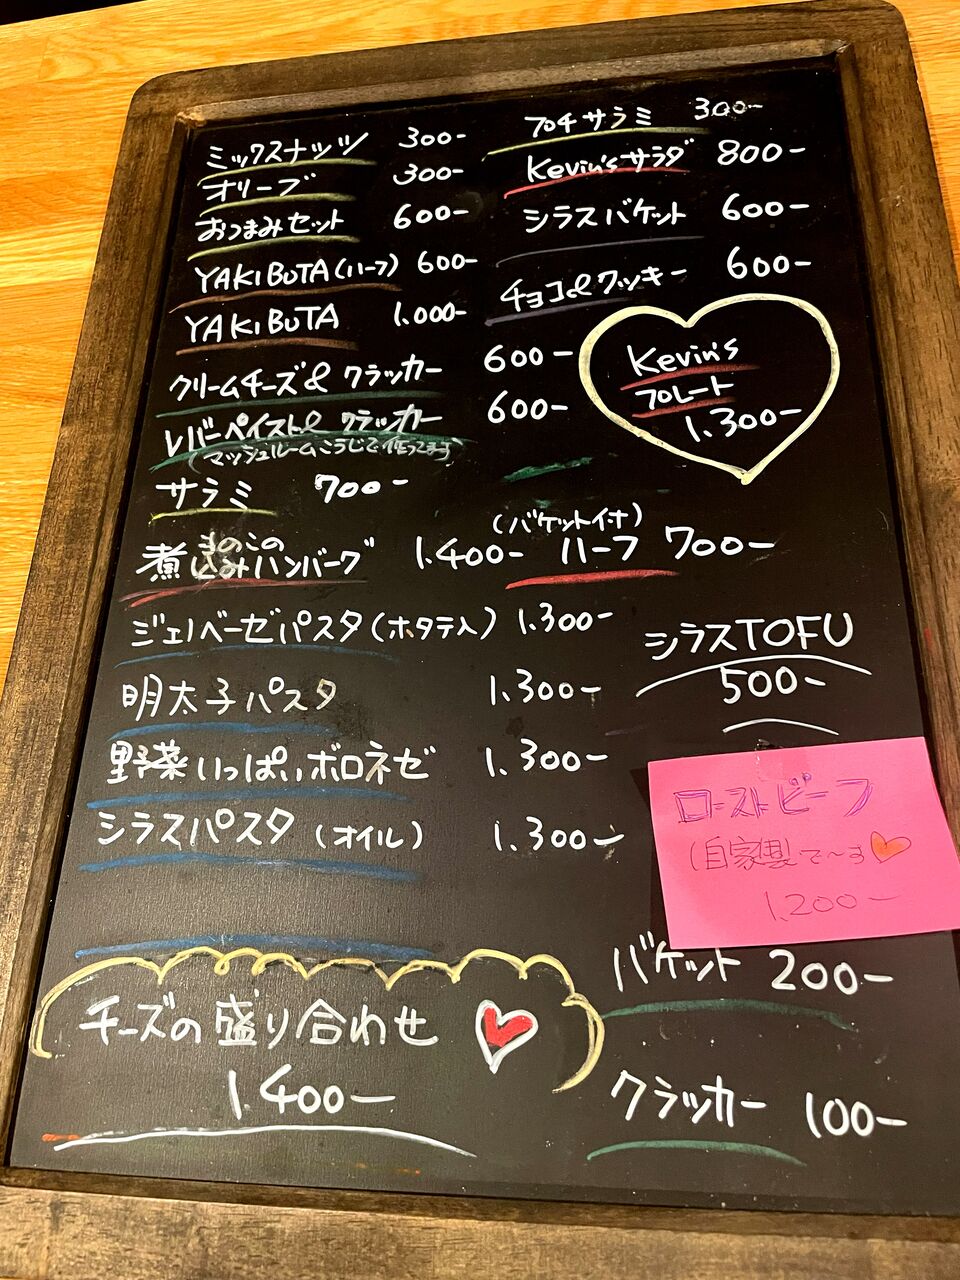 ミックスナッツ 300-
オリーブ 300-
おつまみセット 600-
YAKIBUTA(ハーフ) 600-
YAKIBUTA 1.000-
クリームチーズ& クラッカー 600-
レバーペイスト& クラッカー 600-
(マッシュルームこうじで作ってます)
サラミ 700-
プチサラミ 300-
Kevin'sサラダ 800-
シラスバケット 600-
チョコ&クッキー 600-
Kevin's
プレート
1.300-
きのこの
煮込みハンバーグ 1.400-
(バケット付)
ハーフ 700-
ジェノベーゼパスタ(ホタテ入) 1.300-
明太子パスタ 1.300-
野菜いっぱいボロネゼ 1.300-
シラスパスタ (オイル) 1.300-
シラスTOFU
500-
ローストビーフ
(自家製で〜す
1.200-
チーズの盛り合わせ
1.400-
バケット 200-
クラッカー 100-